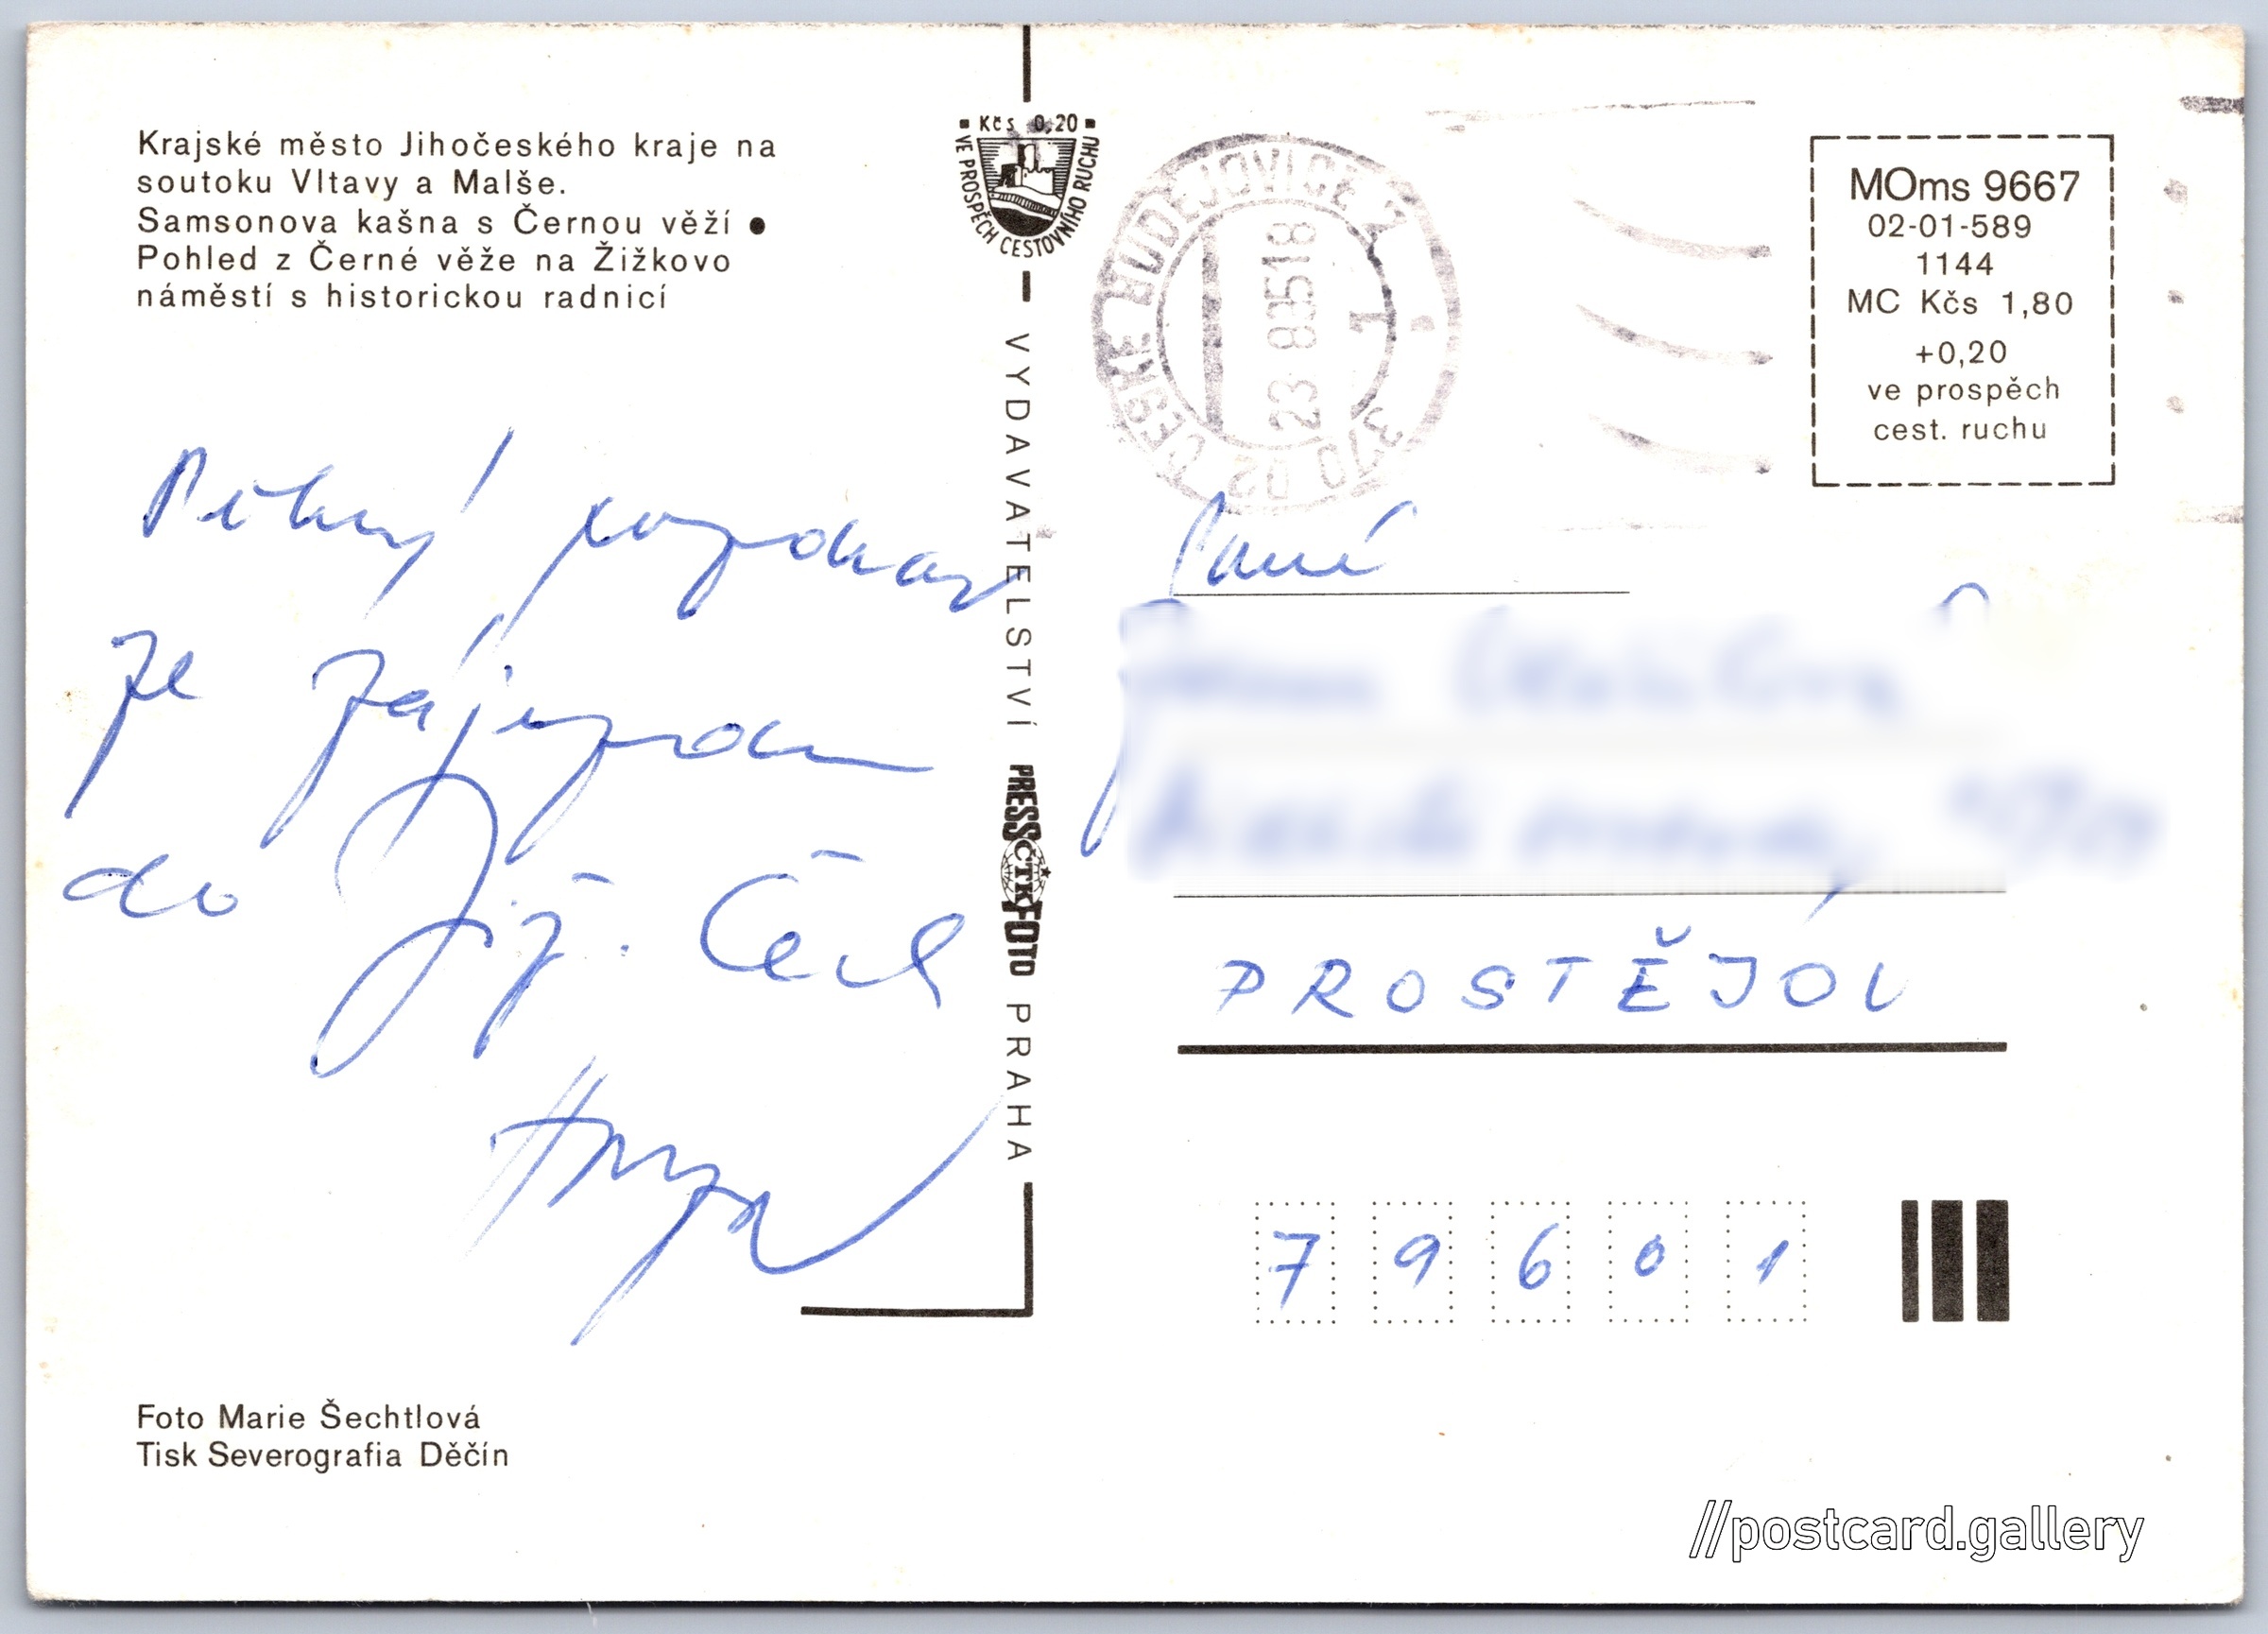 Krajské město Jihočeského kraje na
soutoku Vltavy a Malše.
Samsonova kašna s Černou věží ●
Pohled z Černé věže na Žižkovo
náměstí s historickou radnicí
Pěkný pozdrav
ze zájezdu
do Již. Čech
Foto Marie Šechtlová
Tisk Severografia Děčín
Kčs 0,20
VE PROSPĚCH CESTOVNÍHO RUCHU
VYDAVATELSTVÍ PRESSFOTO PRAHA
ČTK
ČESKÉ BUDĚJOVICE 2
23 8 85 18
1
370 02
MOms 9667
02-01-589
1144
MC Kčs 1,80
+0,20
ve prospěch
cest. ruchu
Paní
PROSTĚJOV
79601
//postcard.gallery